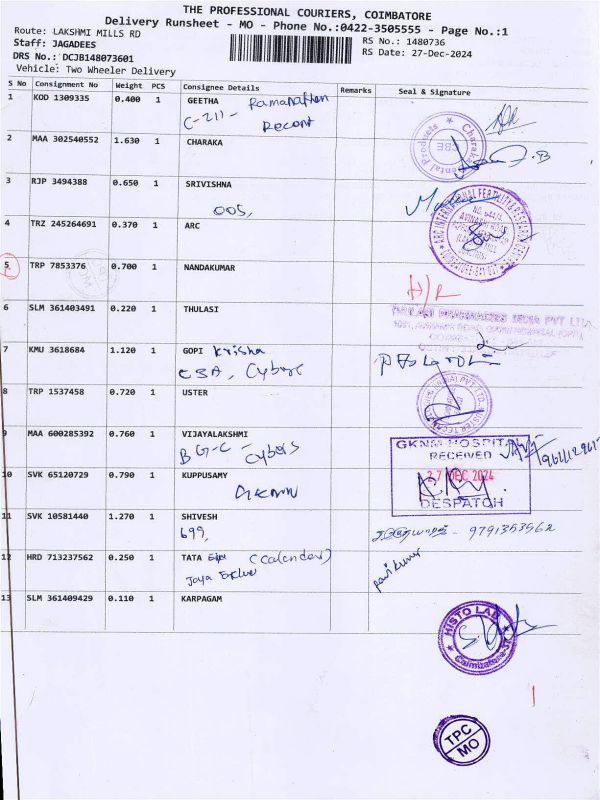 THE PROFESSIONAL COURIERS, COIMBATORE
Delivery Runsheet - MO - Phone No.:0422-3505555 - Page No.:1
Route: LAKSHMI MILLS RD
RS No.: 1480736
Staff: JAGADEES
RS Date: 27-Dec-2024
DRS No.: DCJB148073601
Vehicle: Two Wheeler Delivery
S No Consignment No Weight PCS Consignee Details Remarks Seal & Signature
1 KOD 1309335 0.400 1 GEETHA
C-211-
2 MAA 302540552 1.630 1 CHARAKA
Charaka Dental Products CBE
3 RJP 3494388 0.650 1 SRIVISHNA
005,
4 TRZ 245264691 0.370 1 ARC
5 TRP 7853376 0.700 1 NANDAKUMAR
6 SLM 361403491 0.220 1 THULASI
THULASI PHARMACIES INDIA PVT LTD
7 KMU 3618684 1.120 1 GOPI Krisha
8 TRP 1537458 0.720 1 USTER
9 MAA 600285392 0.760 1 VIJAYALAKSHMI
GKNM HOSPITAL
RECEIVED
27 DEC 2024
DESPATCH
10 SVK 65120729 0.790 1 KUPPUSAMY
11 SVK 10581440 1.270 1 SHIVESH
699,
- 9791353962
12 HRD 713237562 0.250 1 TATA (Calendar)
Jaya
13 SLM 361409429 0.110 1 KARPAGAM
HISTO LAB
TPC
MO